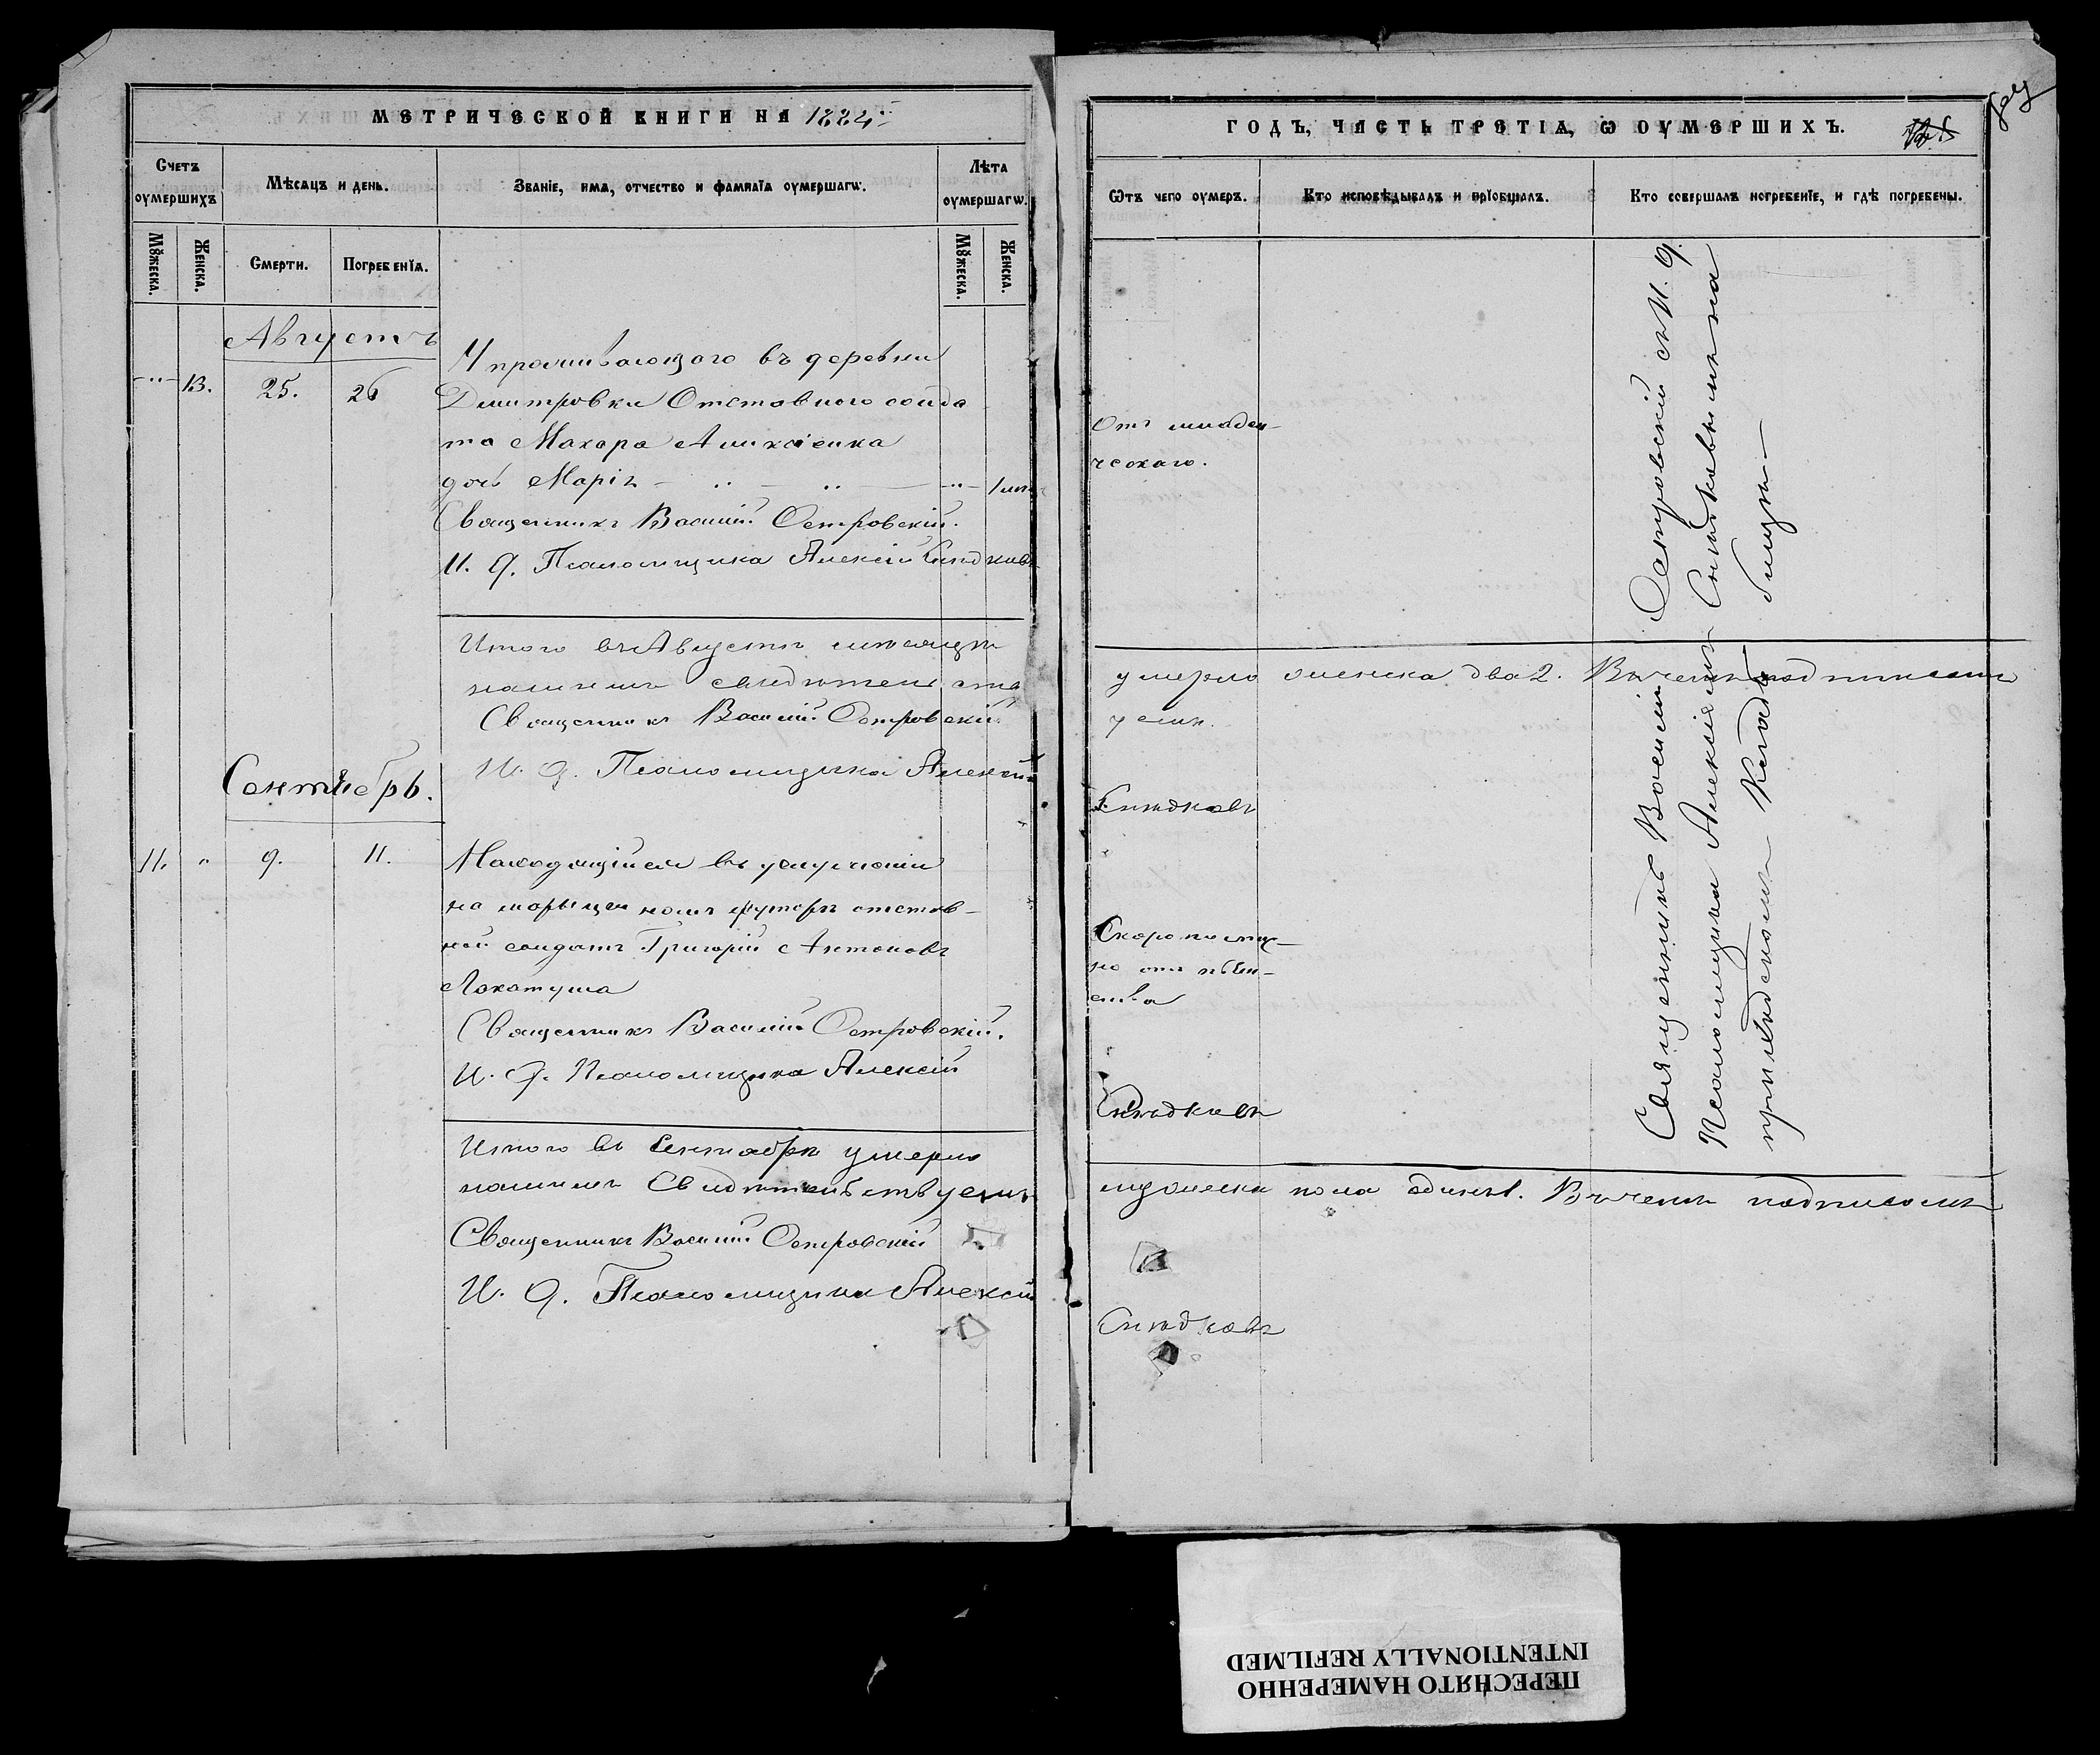 МЕТРИЧЕСКОЙ КНИГИ НА 1884й
Счетъ оумершихъ
Мѣсяцъ и день.
Званіе, имя, отчество и фамилія оумершагѡ.
Лѣта оумершагѡ.
Мꙋжеска.
Женска.
Смерти.
Погребенія.
Мꙋжеска.
Женска.
Августъ
13. 25. 26
У проживающаго въ деревни
Дмитровки Отставного солда
та Макара Аликсіенка
дочь Марія 1
Священникъ Василій Островскій.
И. Д. Псаломщика Алексій Снѣдковъ
Итого въ Августѣ мѣсяцѣ
нашимъ свидѣтельства
Священникъ Василій Островскій
И. Д. Псаломщика Алексій
Сентябрь.
11. " 9. 11.
Находящійся въ услуженіи
на хуторѣ отстав-
ной солдатъ Григорій Антоновъ
Локатуша
Священникъ Василій Островскій.
И. Д. Псаломщика Алексій
Итого въ Сентябрѣ умерло
нашимъ Свидѣтельствуемъ
Священникъ Василій Островскій
И. Д. Псаломщика Алексій
ГОДЪ, ЧАСТЬ ТРЕТІЯ, Ѡ ОУМЕРШИХЪ.
Ѿтъ чего оумеръ.
Кто исповѣдывалъ и пріобщалъ.
Кто совершалъ погребеніе, и гдѣ погребены.
Отъ младен-
ческаго.
умерло женска два 2. Въ чемъ подписомъ
уемъ.
Снѣдковъ
Скоропостиж-
но отъ пьян-
ства
Снѣдковъ
мужеска пола одинъ 1. Въ чемъ подписомъ
Снѣдковъ
Священникъ Василій Островскій съ И. Д.
Псаломщика Алексіемъ Снѣдковымъ на
приходскомъ кладбищѣ
ПЕРЕСНЯТО НАМЕРЕННО
INTENTIONALLY REFILMED